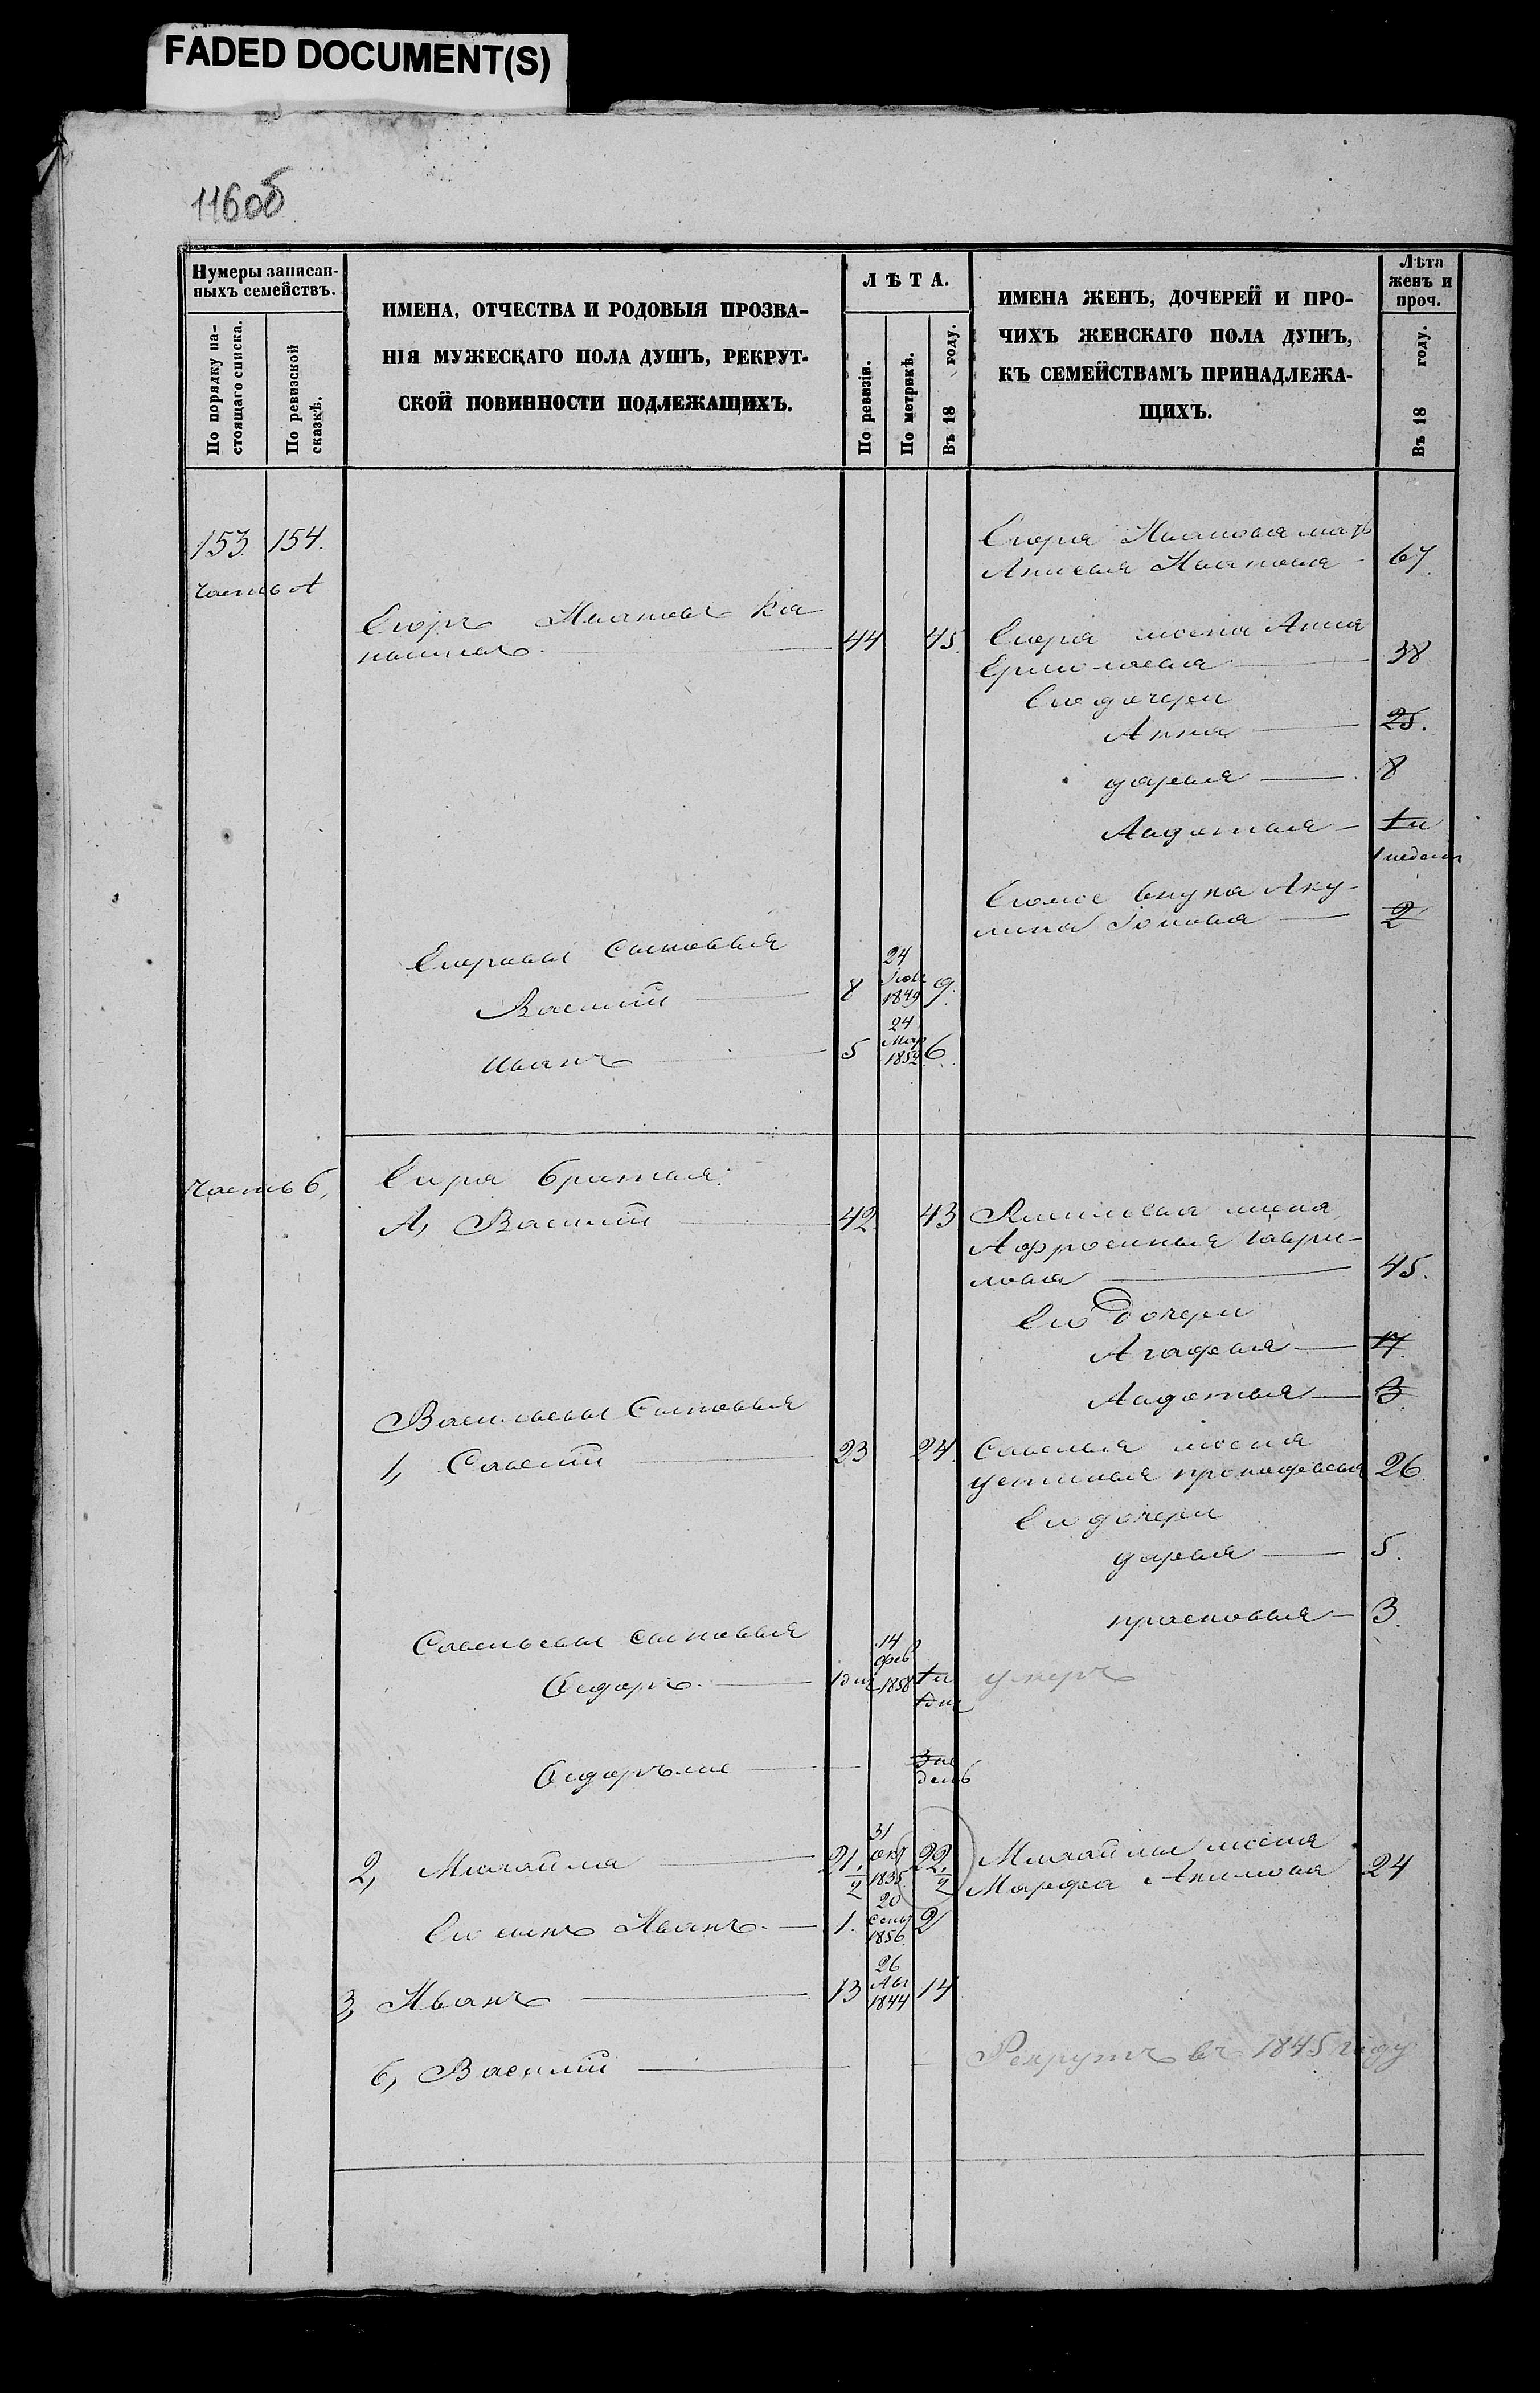 FADED DOCUMENT(S)
116об
Нумеры записан-
ныхъ семействъ.
По порядку на-
стоящаго списка.
По ревизской
сказкѣ.
ИМЕНА, ОТЧЕСТВА И РОДОВЫЯ ПРОЗВА-
НІЯ МУЖЕСКАГО ПОЛА ДУШЪ, РЕКРУТ-
СКОЙ ПОВИННОСТИ ПОДЛЕЖАЩИХЪ.
ЛѢТА.
По ревизіи.
По метрикѣ.
Въ 18 году.
ИМЕНА ЖЕНЪ, ДОЧЕРЕЙ И ПРО-
ЧИХЪ ЖЕНСКАГО ПОЛА ДУШЪ,
КЪ СЕМЕЙСТВАМЪ ПРИНАДЛЕЖА-
ЩИХЪ.
Лѣта
женъ и
проч.
Въ 18 году.
153. 154.
часть А
Егора Иванова мать
Анисья Иванова 67
Егоръ Ивановъ
44 45.
Егора жена Анна
Ермолаева 38
Его дочери
Анна 25.
дарья 8
Авдотья 1 и
1 недели
Егоже внука Аку-
лина Іонова 2
Егоровы сыновья
Василій 8 24 Іюля 1849 9.
Иванъ 5 24 Мар 1852 6.
часть б,
Егора братья:
А, Василій 42 43
Василья жена
Афросинья Гаври-
лова 45.
Его дочери
Агафья 17.
Авдотья 3.
Васильевы Сыновья
1, Савелій 23 24.
Савелья жена
устинья прокофьева 26.
Его дочери
дарья 5.
прасковья 3.
Савельевы сыновья
Федоръ. 14 фев 1858 умеръ
Федоръже 3 не
дель
2, Михайла 21. 1/2 31 окт 1835 22. 1/2
Михайлы жена
Марфа Акимова 24
Его сынъ Иванъ. 1. 20 Сент 1856. 2
3, Иванъ 13 26 Авг 1844 14
б, Василій
Рекрутъ въ 1845 году